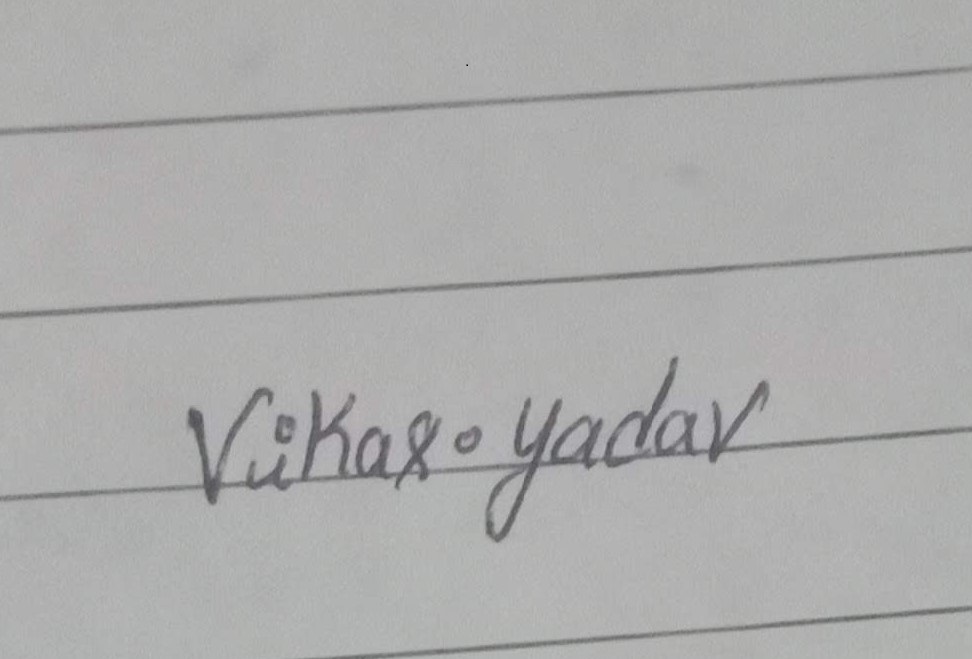 Vikas. yadav